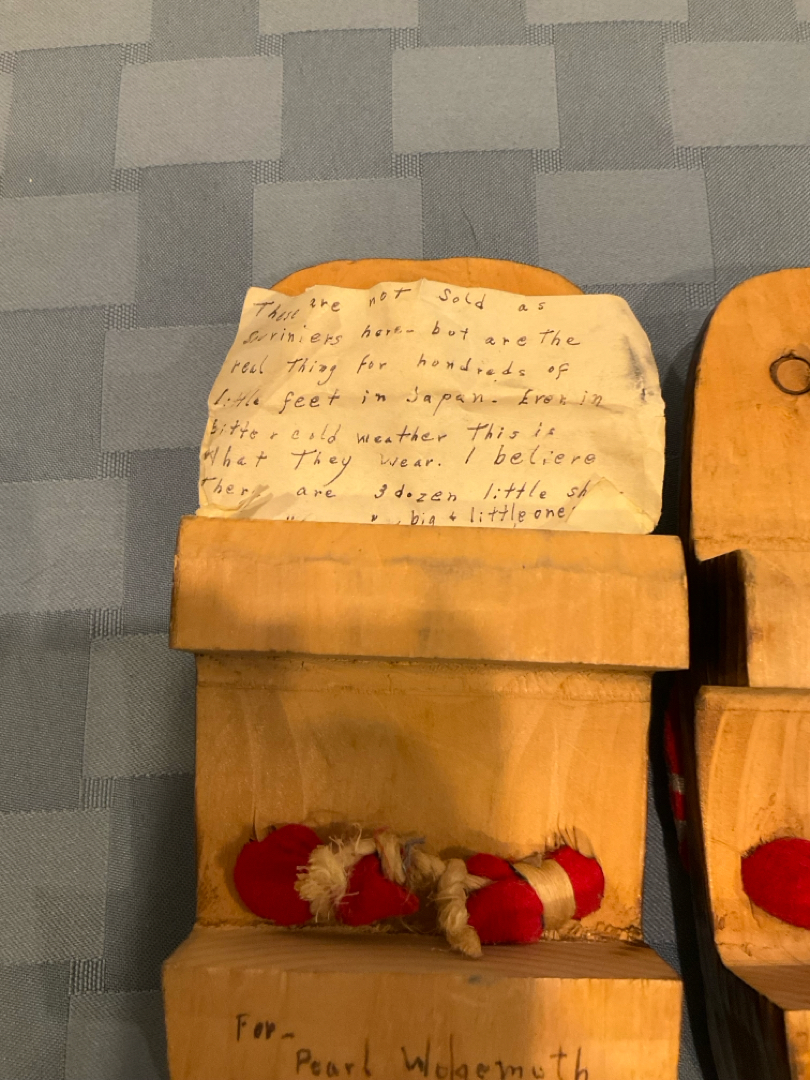 These are not sold as
suviniers here- but are the
real thing for hundreds of
little feet in Japan. Even in
Bitter cold weather This is
What They wear. I believe
There are 3 dozen little
big & little one
For-
Pearl Wolgemuth